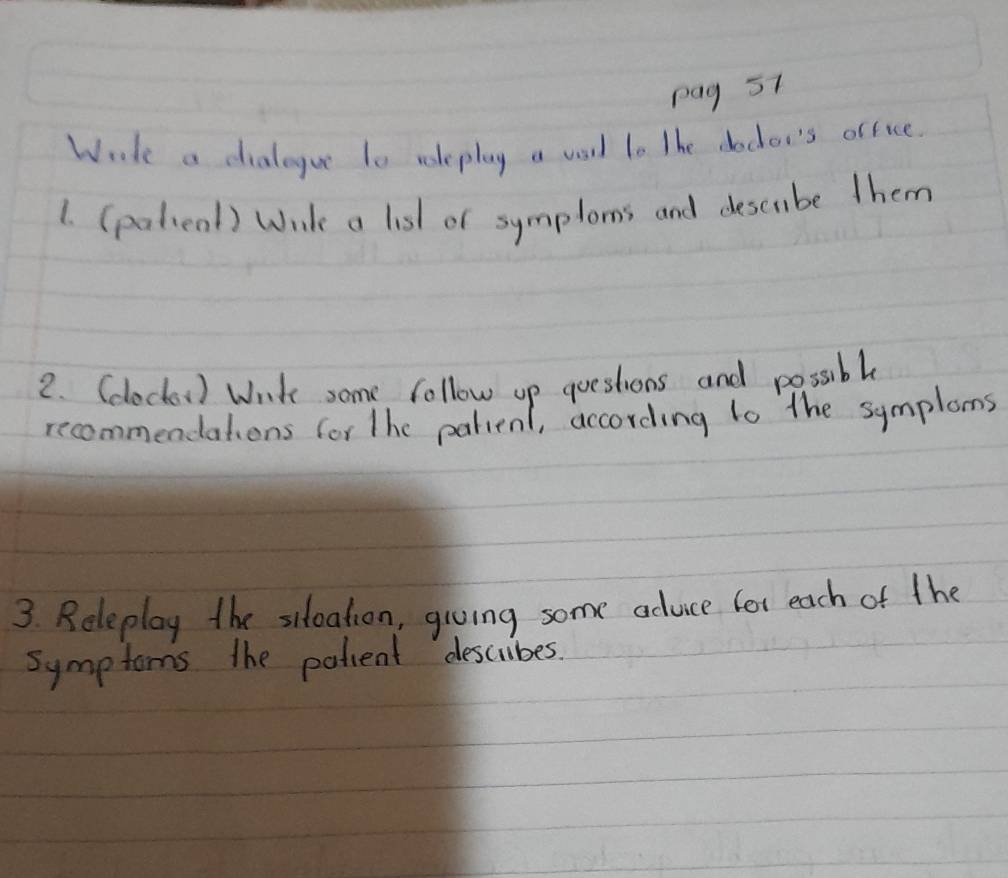 pag 57
Write a dialogue to roleplay a visit to the doctor's office.
1. (patient) Write a list of symptoms and describe them
2. (doctor) Write some follow up questions and possible
recommendations for the patient, according to the symptoms
3. Roleplay the situation, giving some advice for each of the
symptoms the patient describes.